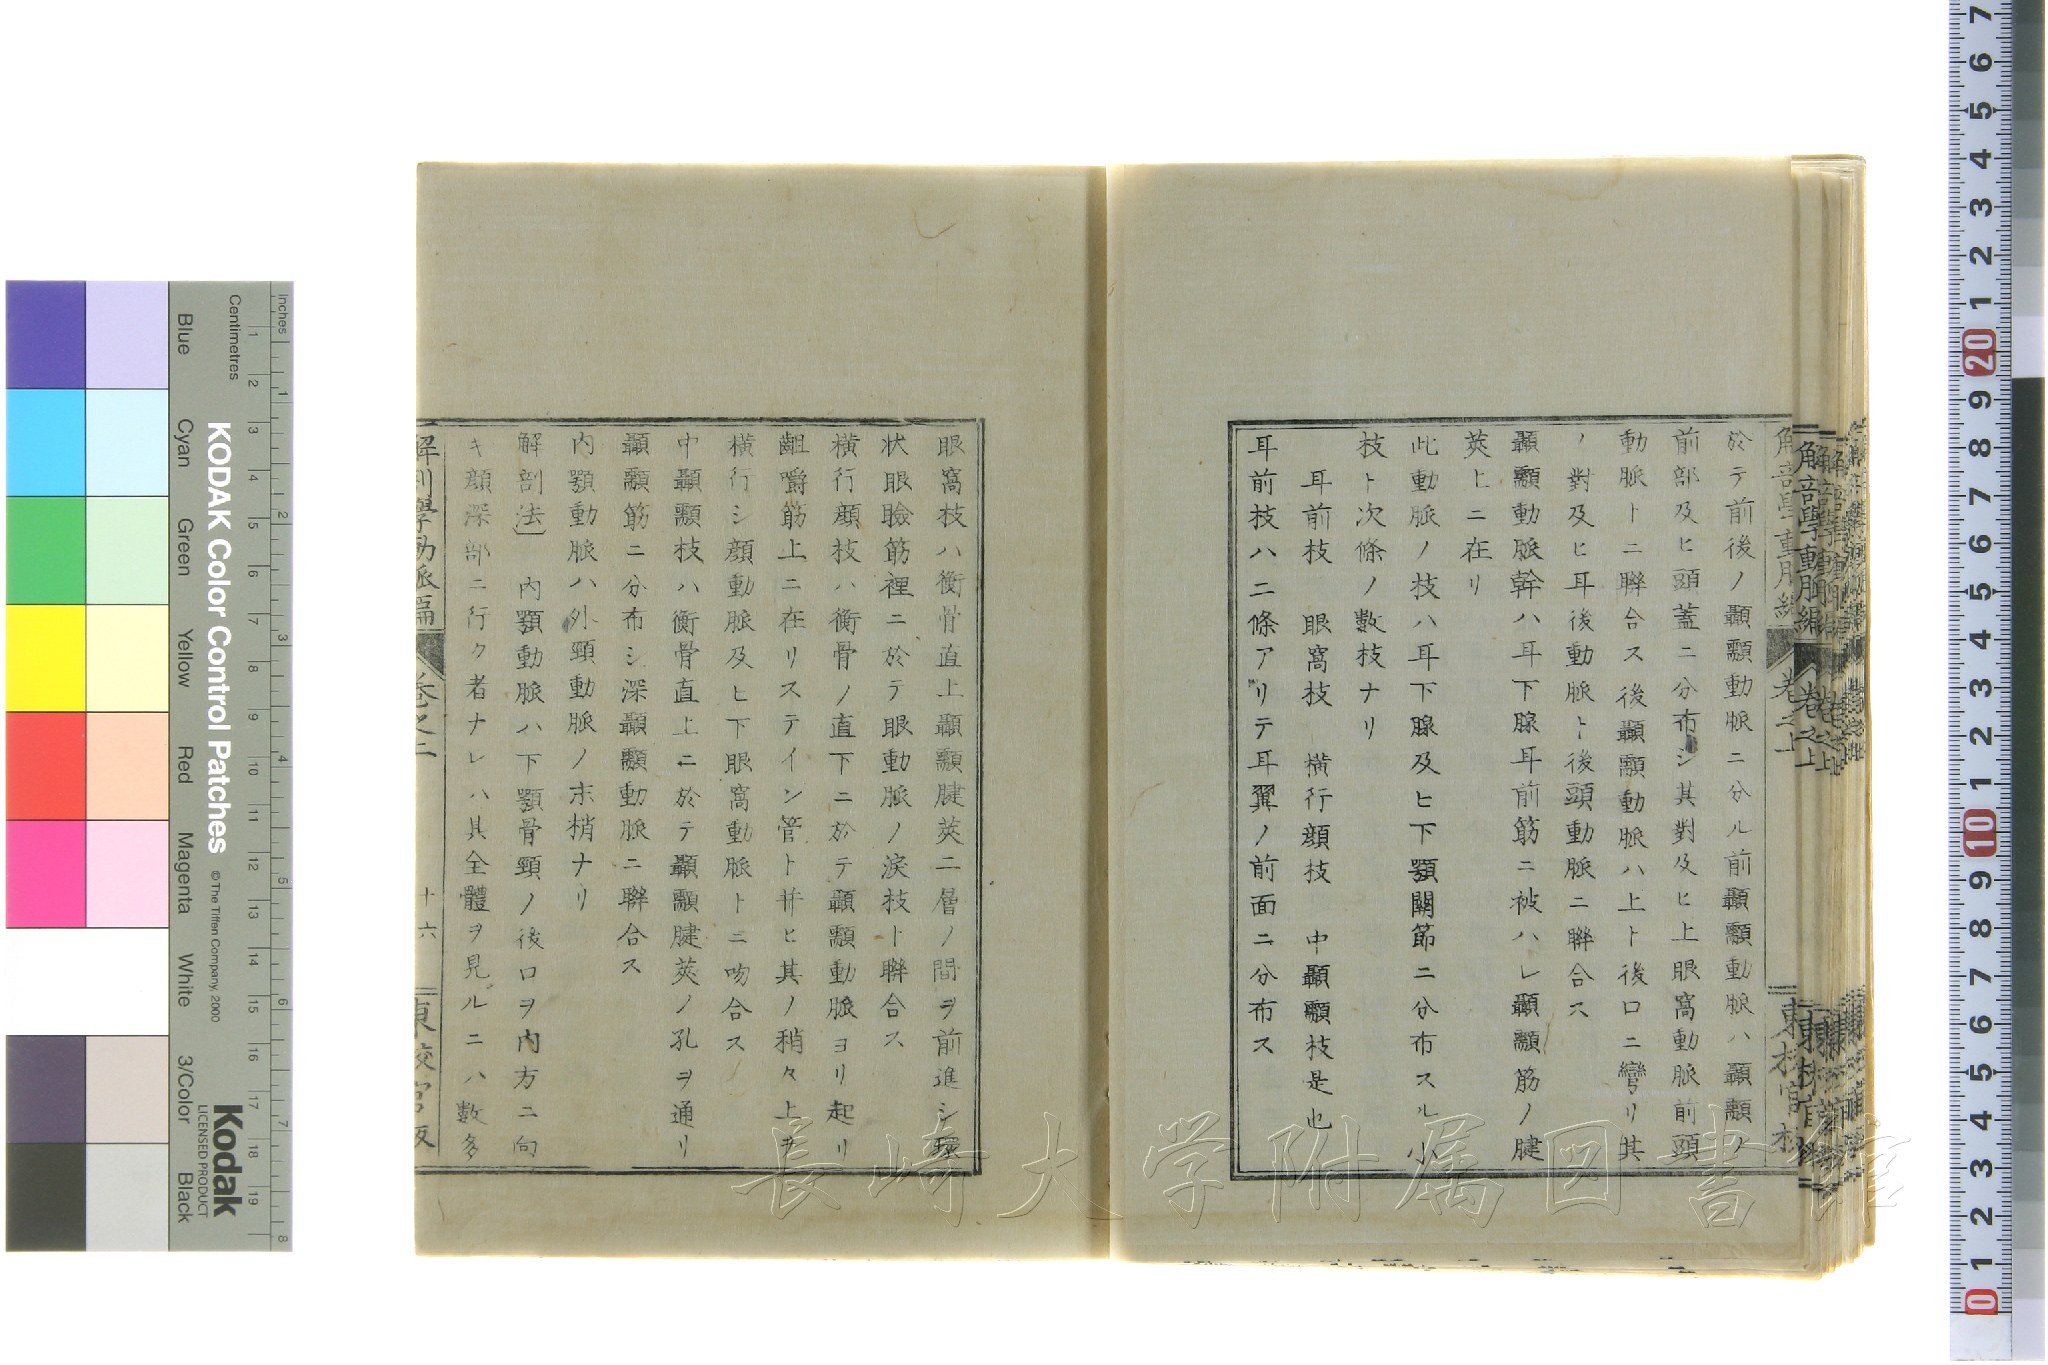 於テ前後ノ顳顬動脈ニ分ル前顳顬動脈ハ顳顬ノ
前部及ヒ頭蓋ニ分布シ其對及ヒ上眼窩動脈前頭
動脈トニ聯合ス後顳顬動脈ハ上ト後口ニ彎リ其
ノ對及ヒ耳後動脈ト後頭動脈ニ聯合ス
顳顬動脈幹ハ耳下腺耳前筋ニ被ハレ顳顬筋ノ腱
莢上ニ在リ
此動脈ノ枝ハ耳下腺及ヒ下顎關節ニ分布スル小
枝ト次條ノ數枝ナリ
耳前枝 眼窩枝 横行顔技 中顳顬枝是也
耳前枝ハ二條アリテ耳翼ノ前面ニ分布ス
眼窩枝ハ衡骨直上顳顬腱莢二層ノ間ヲ前進シ環
状眼瞼筋裡ニ於テ眼動脈ノ淚枝ト聯合ス
横行顔技ハ衡骨ノ直下ニ於テ顳顬動脈ヨリ起リ
齟嚼筋上ニ在リステイン管ト幷ヒ其ノ稍々上ヲ
横行シ顔動脈及ヒ下眼窩動脈トニ吻合ス
中顳顬枝ハ衡骨直上ニ於テ顳顬腱莢ノ孔ヲ通リ
顳顬筋ニ分布シ深顳顬動脈ニ聯合ス
内顎動脈ハ外頸動脈ノ末梢ナリ
解剖法」 内顎動脈ハ下顎骨頸ノ後口ヲ内方ニ向
キ顔深部ニ行ク者ナレハ其全體ヲ見ルニハ數多
十六
長崎大学附属図書館
KODAK Color Control Patches
©The Tiffen Company, 2000
Kodak
LICENSED PRODUCT
Inches
Centimetres
Blue
Cyan
Green
Yellow
Red
Magenta
White
3/Color
Black